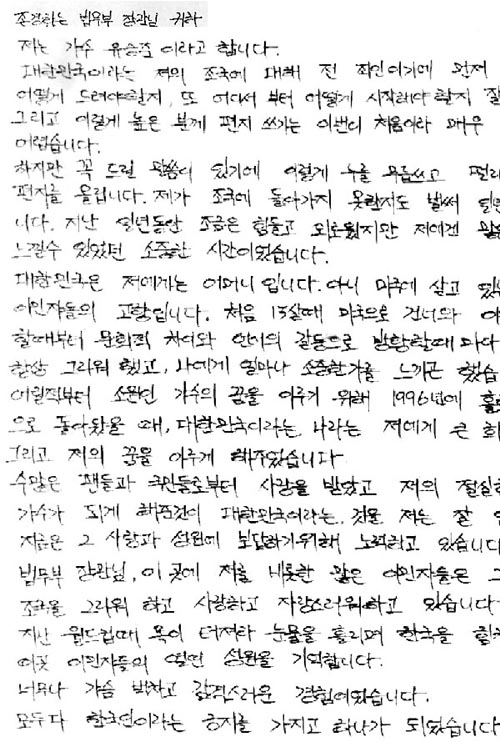 존경하는 법무부 장관님 귀하
저는 가수 유승준이라고 합니다.
대한민국이라는 저의 조국에 대해 전 죄인이기에 먼저
어떻게 드려야할지, 또 어디서 부터 어떻게 시작해야 할지 잘
그리고 이렇게 높은 분께 편지 쓰기는 이번이 처음이라 매우
어렵습니다.
하지만 꼭 드릴 말씀이 있기에 이렇게 무릅쓰고
편지를 올립니다. 제가 조국에 돌아가지 못한지도 벌써 일년
니다. 지난 일년동안 조금은 힘들고 외로웠지만 저에겐
느낄수 있었던 소중한 시간이였습니다.
대한민국은 저에게는 어머니 입니다. 아니 미국에 살고 있
이민자들의 고향입니다. 처음 13살때 미국으로 건너와
할때부터 문화적 차이와 언어의 갈등으로 방황할때 마다
항상 그리워 했고, 나에게 얼마나 소중한가를 느끼곤 했습
어릴적부터 소원인 가수의 꿈을 이루기 위해 1996년에 홀
으로 돌아왔을 때, 대한민국이라는 나라는 저에게 큰
그리고 저의 꿈을 이루게 해주었습니다
수많은 팬들과 국민들로부터 사랑을 받았고 저의 절실
가수가 되게 해준것이 대한민국이라는 것을 저는 잘
지금은 그 사랑과 성원에 보답하기위해 노력하고 있습니다
법무부 장관님, 이 곳에 저를 비롯한 많은 이민자들은
조국을 그리워 하고 사랑하고 자랑스러워하고 있습니다
지난 월드컵때 목이 터져라 눈물을 흘리며 한국을
이곳 이민자들의 성원을 기억합니다.
너무나 가슴 벅차고 감격스러운 경험이였습니다.
모두다 한국인이라는 긍지를 가지고 하나가 되었습니다